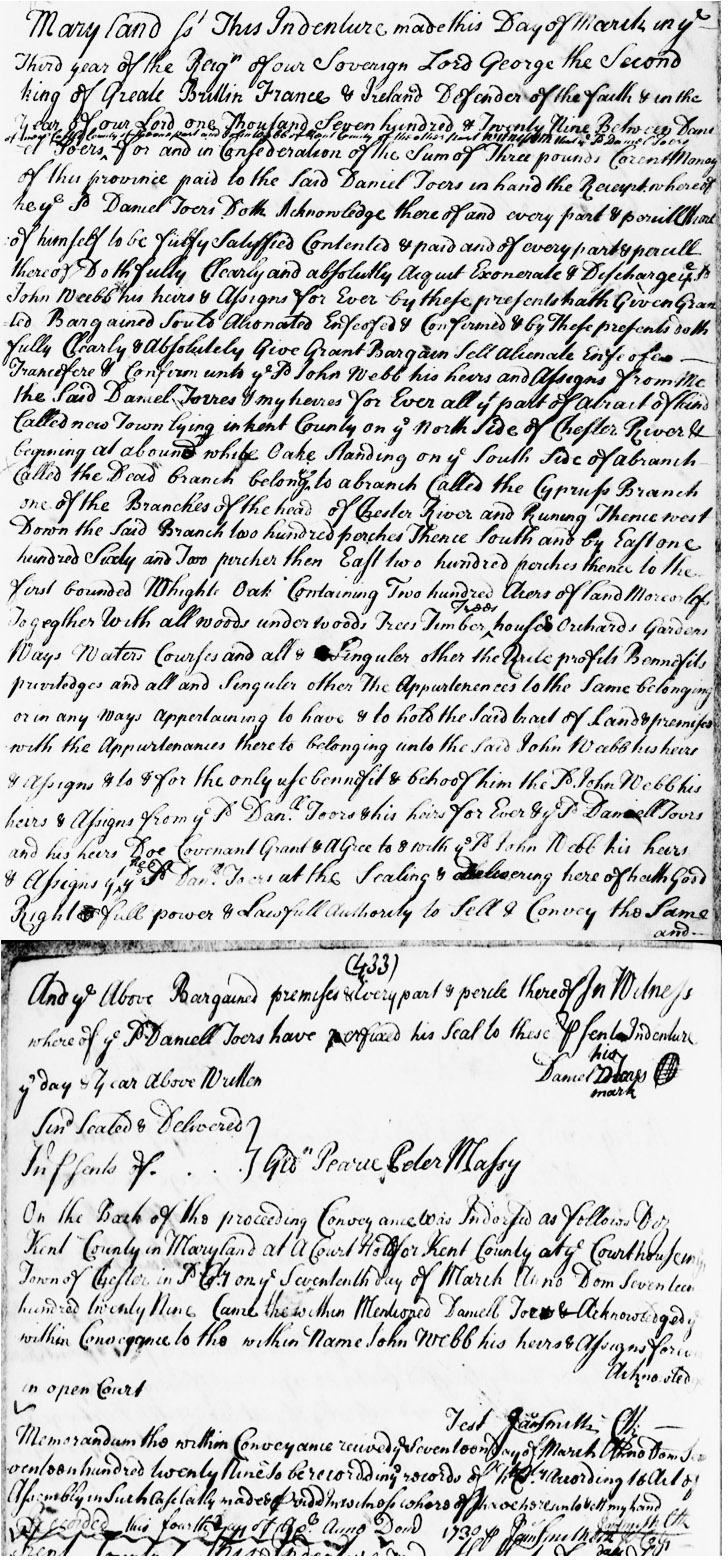 Maryland ss This Indenture made this Day of March in ye
Third year of the Reign of our Sovereign Lord George the Second
king of Greate Brittin France & Ireland Defender of the faith & in the
Year of our Lord one Thousand Seven hundred & Twenty Nine Between Dani
County of the one part and John Webb of Kent County of the other part Witnesseth that ye Sd Daniel Toers
el Toers for and in Confederation of the Sum of Three pounds Corent Money
of this province paid to the Said Daniel Toers in hand the Receipt whereof
he ye Sd Daniel Toers Doth Acknowledge there of and every part & percill
of himself to be fully Satyffied Contented & paid and of every part & percill
thereof Doth fully Clearly and absolutly Acquit Exonerate & Discharge ye Sd
John Webb his heirs & Assigns for Ever by these presents hath Given Gran
ted Bargained Sould Alionated Enfeofed & Confirmed & by These presents doth
fully Clearly & Absolutely Give Grant Bargain Sell Alienate Enfeofe
Transfere & Confirm unto ye Sd John Webb his heirs and Assigns from Me
the Said Daniel Torres & my heires for Ever all yt part of a tract of
Called new Town Lying in kent County on ye North Side of Chester River &
begining at a bound white Oake Standing on ye South Side of a branch
Called the Dead branch belong to a branch Called the Cypruss Branch
one of the Branches of the head of Chester River and Runing Thence west
Down the Said Branch two hundred perches Thence South and by East one
hundred Sixty and Two percher then East two hundred perches thence to the
first bounded Whight Oak Containing Two hundred Akers of land More or less
Togegther With all woods under woods Trees Timber Trees houses Orchards Gardens
Ways Waters Courses and all & Singuler other the profits Bennefits
priviledges and all and Singuler other The Appurtenences to the Same belonging
or in any ways Appertaining to have & to hold the Said tract of Land & premises
with the Appurtenances there to belonging unto the Said John Webb his heirs
& Assigns & to & for the only use bennefit & behoof him the Sd John Webb his
heirs & Assigns from ye Sd Danll Toors & his heirs for Ever & ye Sd Daniell Toors
and his heirs Doe Covenant Grant & Agree to & with ye Sd John Webb his heirs
& Assigns yt he ye Sd Danll Toers at the Sealing & Delivering here of hath Good
Right & full power & Lawfull Authority to Sell & Convey the Same
and
(433)
And ye Above Bargained premises & Every part & percile thereof In Witness
where of ye Sd Daniell Toers have his Seal to these psents Indenture
ye day & Year Above Written
his
Daniel Toers
mark
Sind Sealed & Delivered
In psents of . . . Gidn Pearce Peter Massy
On the Back of the proceeding Conveyance was Indorsed as follows Viz
Kent County in Maryland at A Court Held for Kent County at ye Courthouse in ye
Town of Chester in Sd Coty on ye Sevententh day of March Anno Dom Seventeen
hundred twenty Nine Came the within Mentioned Daniell Toers & Acknowledged ye
within Conveyance to the within Name John Webb his heirs & Assigns for ever
in open Court
Test Jas Smith Clk
Memorandum the within Conveyance received ye Seventeen Day of March Anno Dom Sev
enteen hundred twenty Nine to be recorded in ye records of According to Act of
Assembly in Such Case lately made & Provided In witness where of I have hereunto Sett my hand
Recorded this fourth Day of Anno Domi 1730 Jas Smith Clk